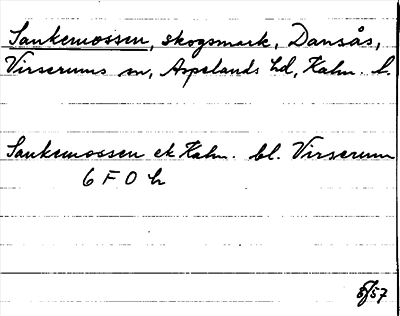 Sankemossen, skogsmark, Dansås,
Virserums sn, Aspelands hd, Kalm. l.
Sankemossen ek Kalm. bl. Virserum
6 F 0 h
/57